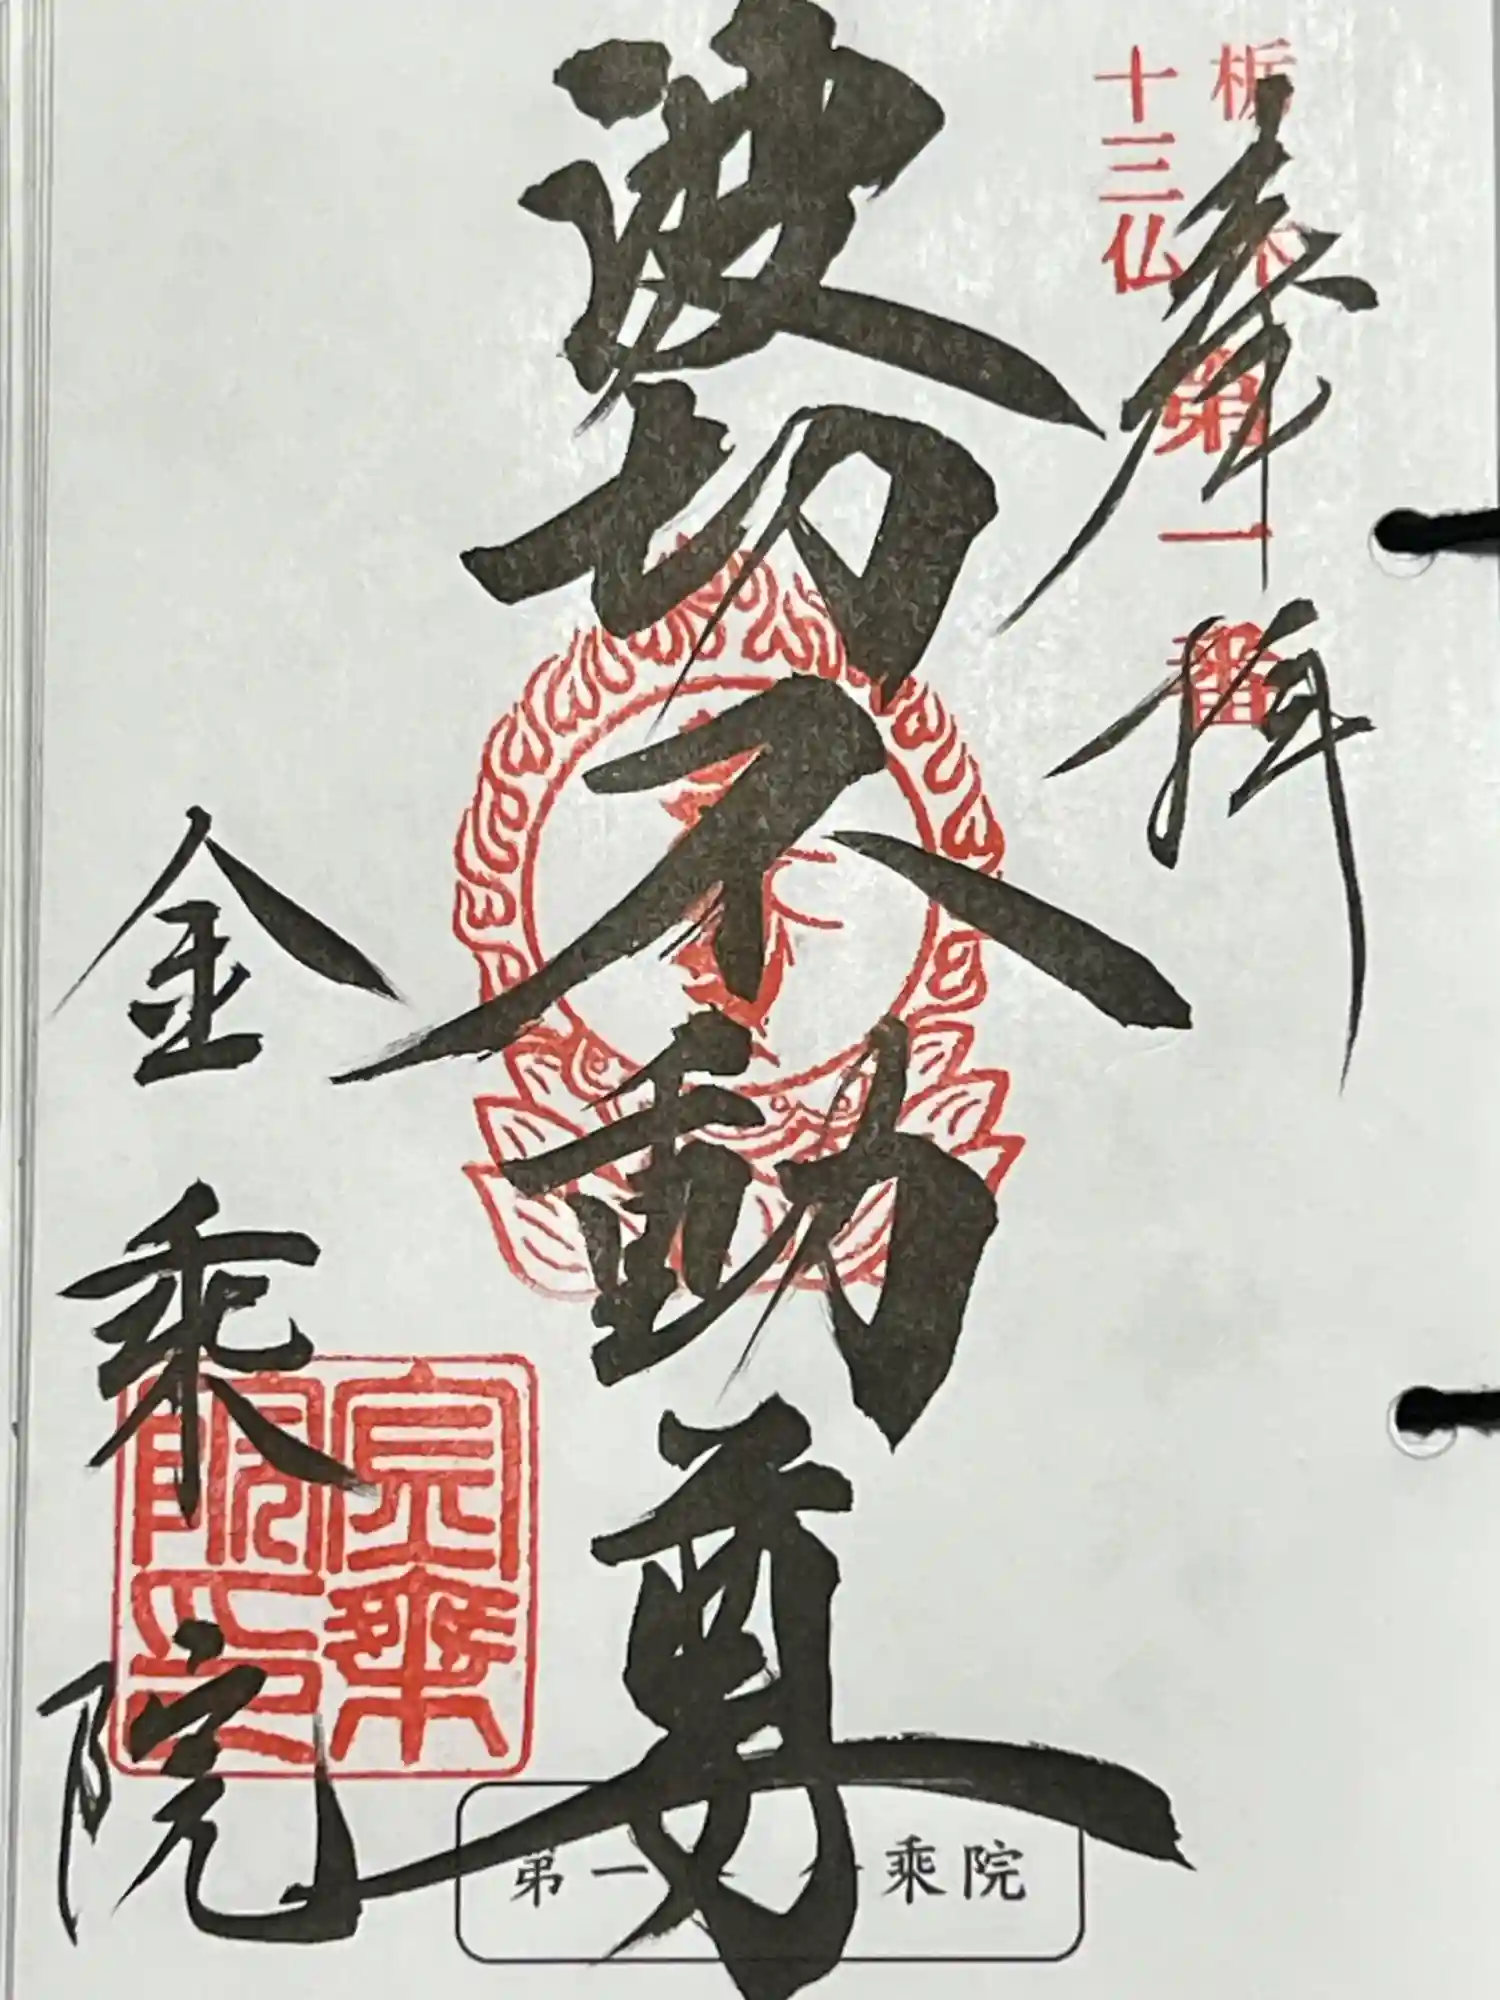 栃木
十三仏
第一番
奉拝
波切不動尊
金乗院
金乗院印
第一 乗院